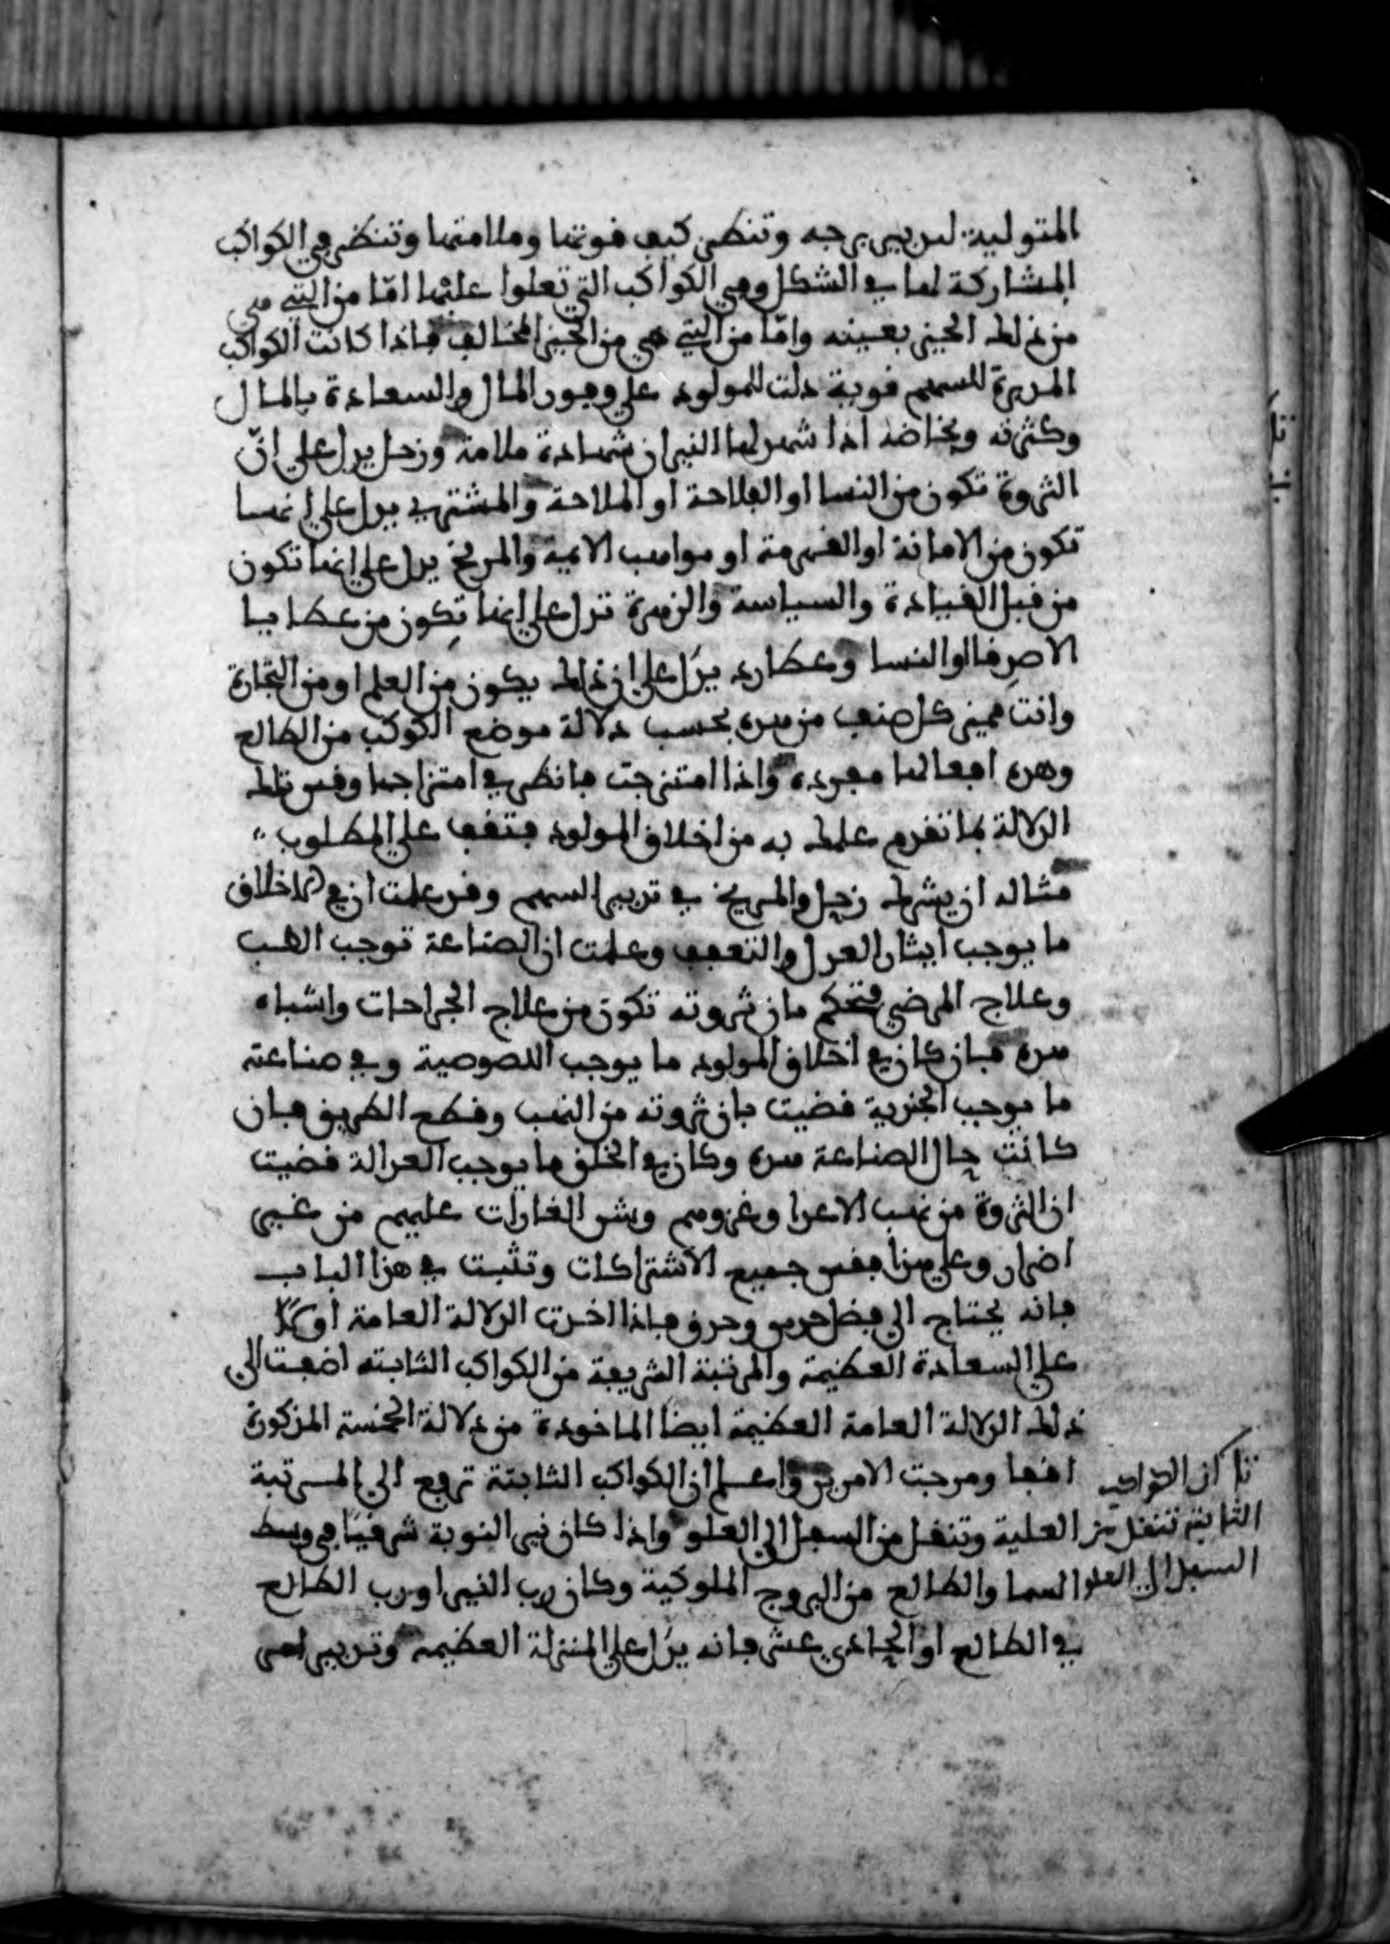 المتولية لتدبير برجه وتنظر كيف قوتها وملامتها وتنظر في الكواكب
المشاركة لها في الشكل وهي الكواكب التي تعلوا عليها امّا من التي هي
من ذلك الحيز بعينه وامّا من التي هي من الحيز المخالف فاذا كانت الكواكب
المدبرة للسهم قوية دلت للمولود على وفور المال والسعادة بالمال
وكثرته وبخاصة اذا شهد لها النيران شهادة ملامة وزحل يدل على انّ
الثروة تكون من النسا او الفلاحة او الملاحة والمشتري يدل على انها
تكون من الامانة او الهرمة او مواهب الايمة والمريخ يدل على انها تكون
من قبل القيادة والسياسة والزهرة تدل على انها تكون من عطايا
الاصدقا او النسا وعطارد يدل على ان ذلك يكون من العلم او من التجارة
وانت تميز كل صنف من هذه بحسب دلالة موضع الكوكب من الطالع
وهذه افعالها مفردة واذا امتزجت فانظر في امتزاجها وقس تلك
الدلالة بما تقدم علمك به من اخلاق المولود فتقف على المطلوب
مثاله ان يشرك زحل والمريخ في تدبير السهم وقد علمت ان في الاخلاق
ما يوجب ايثار العدل والتعفف وعلمت ان الصناعة توجب الطب
وعلاج المرضى فتحكم بان ثروته تكون من علاج الجراحات واشباه
هذه فان كان في اخلاق المولود ما يوجب اللصوصية وفي صناعته
ما يوجب الجندية قضيت بان ثروته من النهب وقطع الطريق فان
كانت حال الصناعة هذه وكان في الخلق ما يوجب العدالة قضيت
ان الثروة من نهب الاعدا وغزوهم وشن الغارات عليهم من غير
اضرار وعلى هذا فقس جميع الاشتراكات وتثبت في هذا الباب
فانه يحتاج الى فضل حدس وحذق فاذا اخذت الدلالة العامة اولا
على السعادة العظيمة والمرتبة الشريفة من الكواكب الثابته اضفت الى
ذلك الدلالة العامة العظيمة ايضا الماخوذة من دلالة الخمسة المذكورة
انفا ومزجت الامرين واعلم ان الكواكب الثابتة ترفع الى المرتبة
العلية وتنقل من السفل الى العلو واذا كان نير النوبة شرقيا في وسط
السما والطالع من البروج الملوكية وكان رب النير او رب الطالع
في الطالع او الحادي عشر فانه يدل على المنزلة العظيمة وتدبير امر
ان الكواكب
الثابتة تنقل من
السفل الى العلو